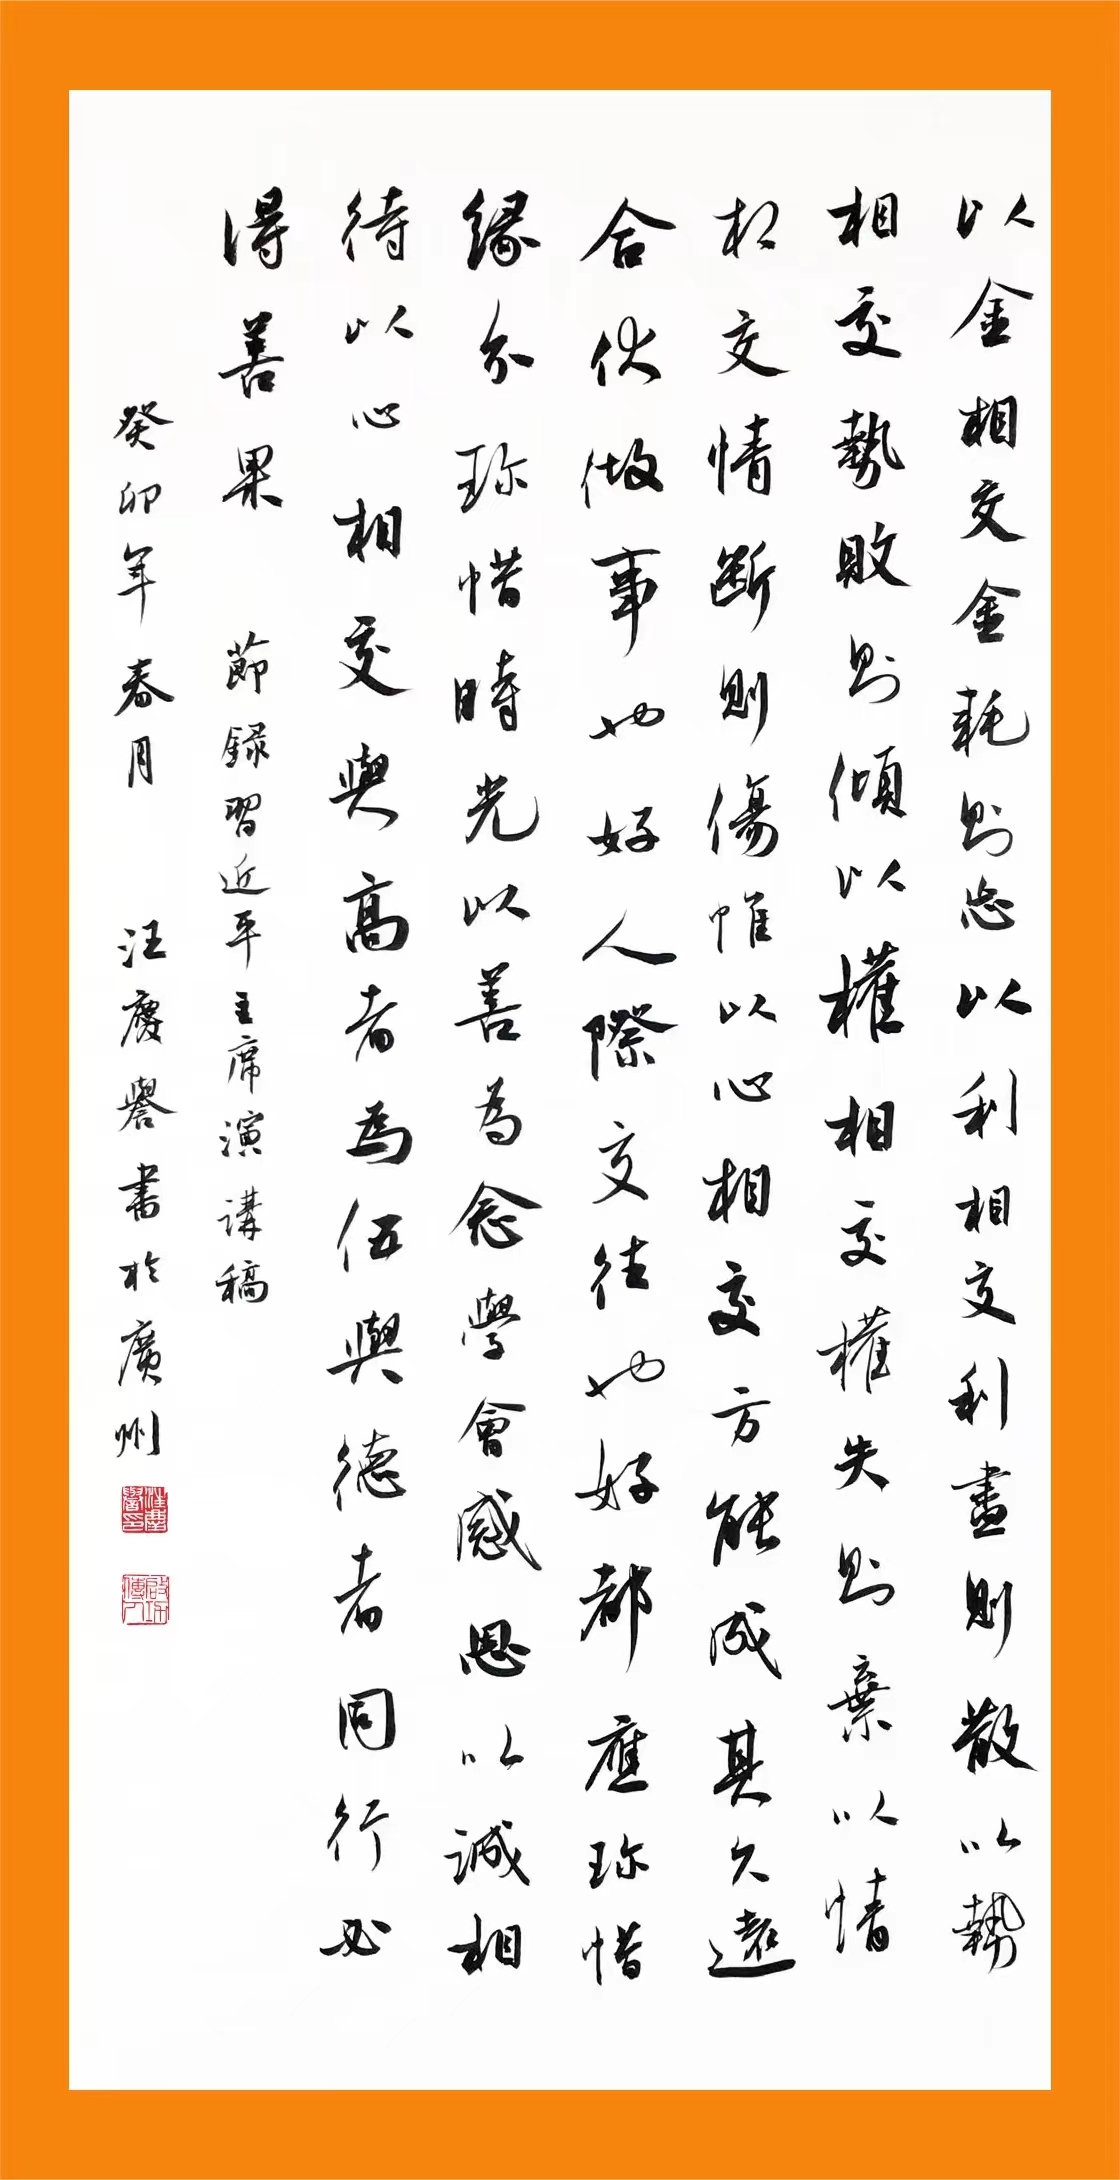 以金相交金耗則忘以利相交利盡則散以勢
相交勢敗則傾以權相交權失則棄以情
相交情斷則傷惟以心相交方能成其久遠
合伙做事也好人際交往也好都應珍惜
緣分珍惜時光以善為念學會感恩以誠相
待以心相交與高者為伍與德者同行必
得善果 節録習近平主席演講稿
癸卯年春月 汪慶譽書於廣州
汪慶譽印
啟功傳人